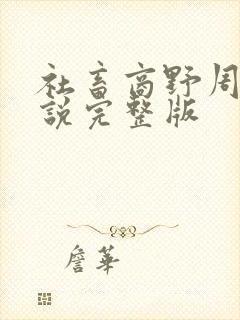 社畜高野周
說完整版
詹華